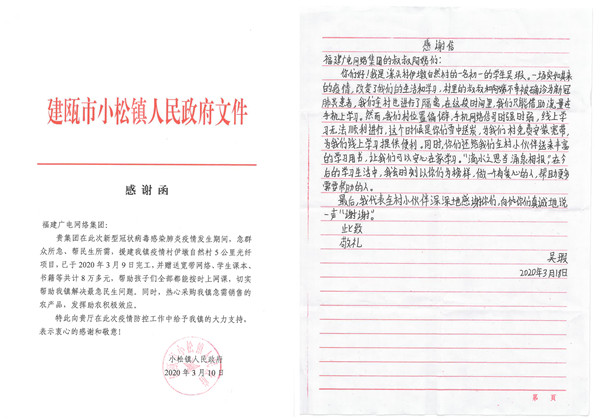 建瓯市小松镇人民政府文件
感谢函
福建广电网络集团:
贵集团在此次新型冠状病毒感染肺炎疫情发生期间,急群
众所急,帮民生所需,援建我镇疫情村伊墩自然村5公里光纤
项目,已于2020年3月9日完工,并赠送宽带网络、学生课本、
书籍等共计8万多元,帮助孩子们全部都能按时上网课,切实
帮助我镇解决最急民生问题。同时,热心采购我镇急需销售的
农产品,发挥助农积极效应。
特此向贵厅在此次疫情防控工作中给予我镇的大力支持,
表示衷心的感谢和敬意!
小松镇人民政府
2020年3月10日
感谢信
福建广电网络集团的叔叔阿姨们:
你们好!我是湖头村伊墩自然村的一名初一的学生吴瑕。一场突如其来
的疫情,改变了我们的生活和学习,村里的叔叔和阿姨不幸被确诊为新冠
肺炎患者,我们全村也进行了隔离,在这段时间里,我们只能借助流量在
手机上学习。然而,我们村位置偏僻,手机网络信号时强时弱,线上学
习无法顺利进行,这个时候是你们雪中送炭,为我们村免费安装宽带,
为我们线上学习提供便利。同时,你们还给我们全村小伙伴送来丰富
的学习用书,让我们可以安心在家学习。"滴水之恩当涌泉相报",在今
后的学习生活中,我会时刻以你们为榜样,做一个有爱心的人,帮助更多
需要帮助的人。
最后,我代表全村小伙伴深深地感谢你们,向你们真诚地说
一声"谢谢"。
此致
敬礼
吴瑕
2020年3月13日
第 页